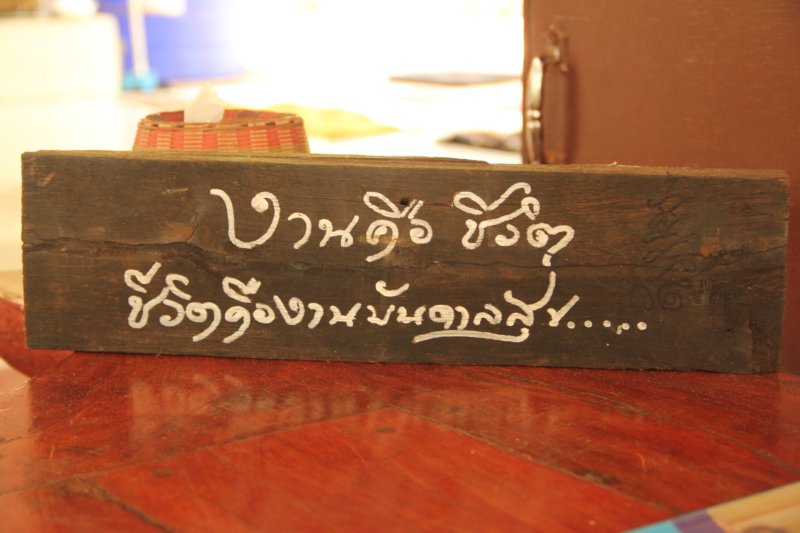 งานคือ ชีวิต
ชีวิตคืองานบันดาลสุข......